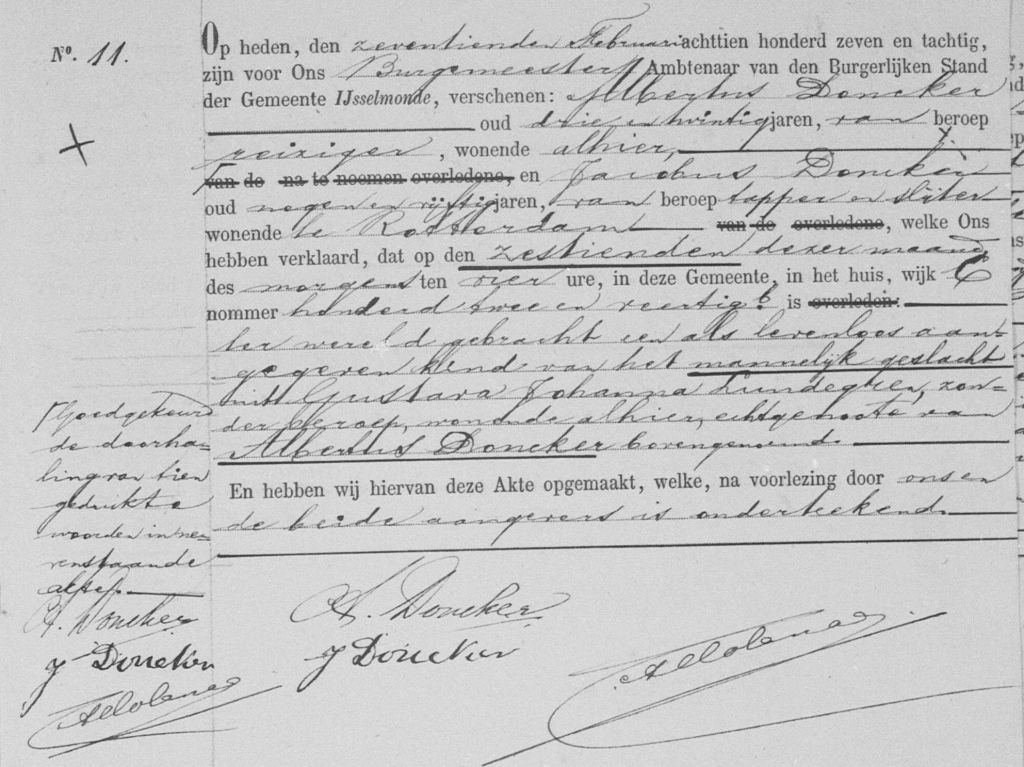 Nº. 11.
Op heden, den zeventienden Februari achttien honderd zeven en tachtig,
zijn voor Ons Burgemeester, Ambtenaar van den Burgerlijken Stand
der Gemeente IJsselmonde, verschenen: Albertus Doncker
oud drie en twintig jaren, van beroep
reiziger, wonende alhier,
van de na te noemen overledene, en Jacobus Doncker
oud negen en vijftig jaren, van beroep tapper en slijter
wonende te Rotterdam van de overledene, welke Ons
hebben verklaard, dat op den zestienden dezer maand
des morgens ten vier ure, in deze Gemeente, in het huis, wijk C
nommer honderd twee en veertig b is overleden:
ter wereld gebracht een als levenloos aan-
gegeven kind van het mannelijk geslacht
uit Gustava Johanna Lundegren, zon-
der beroep, wonende alhier, echtgenoote van
Albertus Doncker bovengenoemd.
En hebben wij hiervan deze Akte opgemaakt, welke, na voorlezing door ons en
de beide aangevers is onderteekend.
Goedgekeurd
de doorha-
ling van tien
gedrukte
woorden in ne-
venstaande
akte.
A. Doncker
J Doncker
A. Doncker
J Doncker